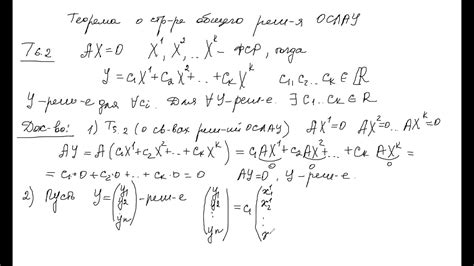 Теорема о стр-ре общего реш-я ОСЛАУ
T6.2 AX=0 X¹, X², .. Xᵏ - ФСР, тогда
Y = c₁X¹ + c₂X² + .. + cₖXᵏ c₁, c₂ .. cₖ ∈ ℝ
Y-реш-е для ∀cᵢ. Для ∀Y-реш-е. ∃ c₁ .. cₖ ∈ ℝ
Док-во: 1) T5.2 (о св-вах реш-ий ОСЛАУ) AX¹=0 AX²=0 .. AXᵏ=0
AY = A(c₁X¹ + c₂X² + .. + cₖXᵏ) = c₁AX¹ + c₂AX² + .. + cₖAXᵏ =
0 0 0
= c₁·0 + c₂·0 + .. + cₖ·0 = 0 AY=0, Y-реш-е.
2) Пусть Y = (y₁ y₂ ⋮ yₙ) - реш-е (y₁ y₂ ⋮ yₙ) = c₁ (x₁¹ x₂¹ ⋮